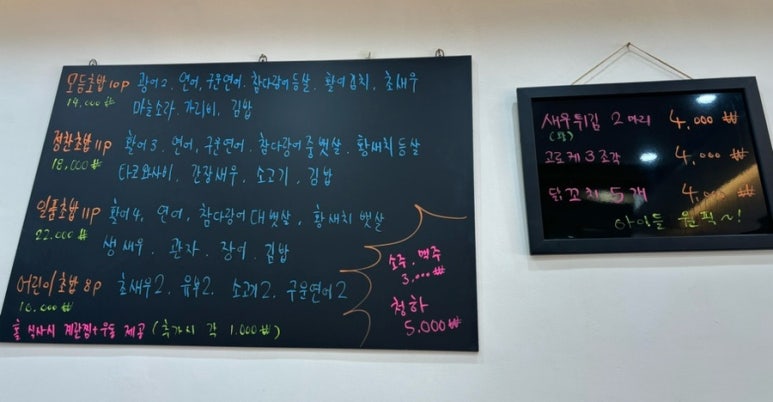 모듬초밥 10p 광어2. 연어, 구운연어. 참다랑어등살. 활어김치, 초새우
14,000₩ 마늘소라. 가리비, 김밥
정찬초밥 11p 활어3. 연어, 구운연어. 참다랑어중뱃살. 황새치등살
18,000₩ 타코와사비, 간장새우, 소고기, 김밥
일품초밥 11p 활어4, 연어, 참다랑어대뱃살, 황새치뱃살
22,000₩ 생새우, 관자, 장어, 김밥
어린이초밥 8p 초새우2. 유부2. 소고기2. 구운연어2
10,000₩
홀 식사시 계란찜+우동 제공 (추가시 각 1,000₩)
소주, 맥주
3,000₩
청하
5,000₩
새우튀김 2마리 4,000₩
고로케 3조각 4,000₩
닭꼬치 5개 4,000₩
아이들 원픽~!